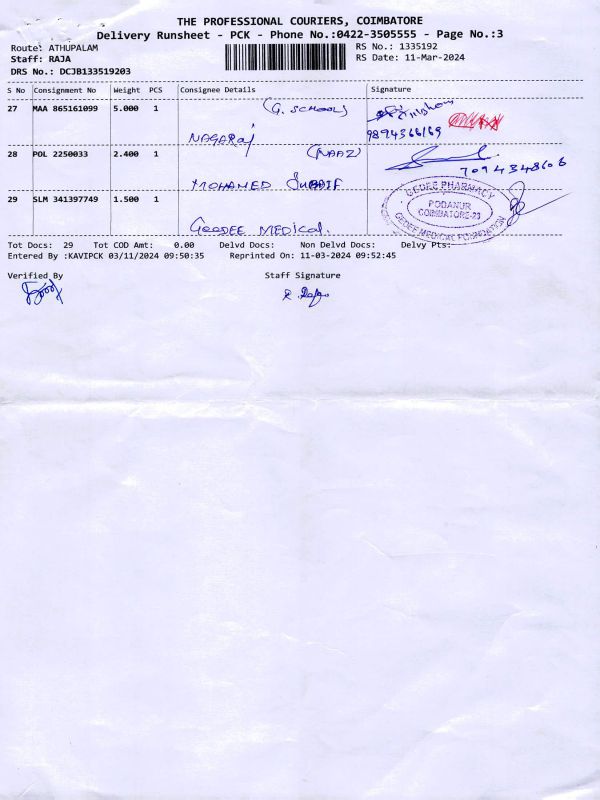 THE PROFESSIONAL COURIERS, COIMBATORE
Delivery Runsheet - PCK - Phone No.:0422-3505555 - Page No.:3
Route: ATHUPALAM RS No.: 1335192
Staff: RAJA RS Date: 11-Mar-2024
DRS No.: DCJB133519203
S No Consignment No Weight PCS Consignee Details Signature
27 MAA 865161099 5.000 1 (G. SCHOOL)
NAGARAJ 9894366169
28 POL 2250033 2.400 1 (NAAZ)
MOHAMED 7094348606
29 SLM 341397749 1.500 1
GEEDEE MEDICAL.
GEDEE PHARMACY
PODANUR
COIMBATORE-23
GEDEE MEDICAL FOUNDATION
Tot Docs: 29 Tot COD Amt: 0.00 Delvd Docs: Non Delvd Docs: Delvy Pts:
Entered By :KAVIPCK 03/11/2024 09:50:35 Reprinted On: 11-03-2024 09:52:45
Verified By Staff Signature